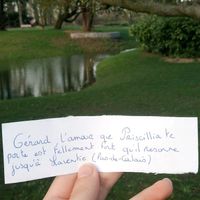 Gérard, l'amour que Priscillia te
porte est tellement fort qu'il resonne
jusqu'à Marentie (Pas-de-Calais)